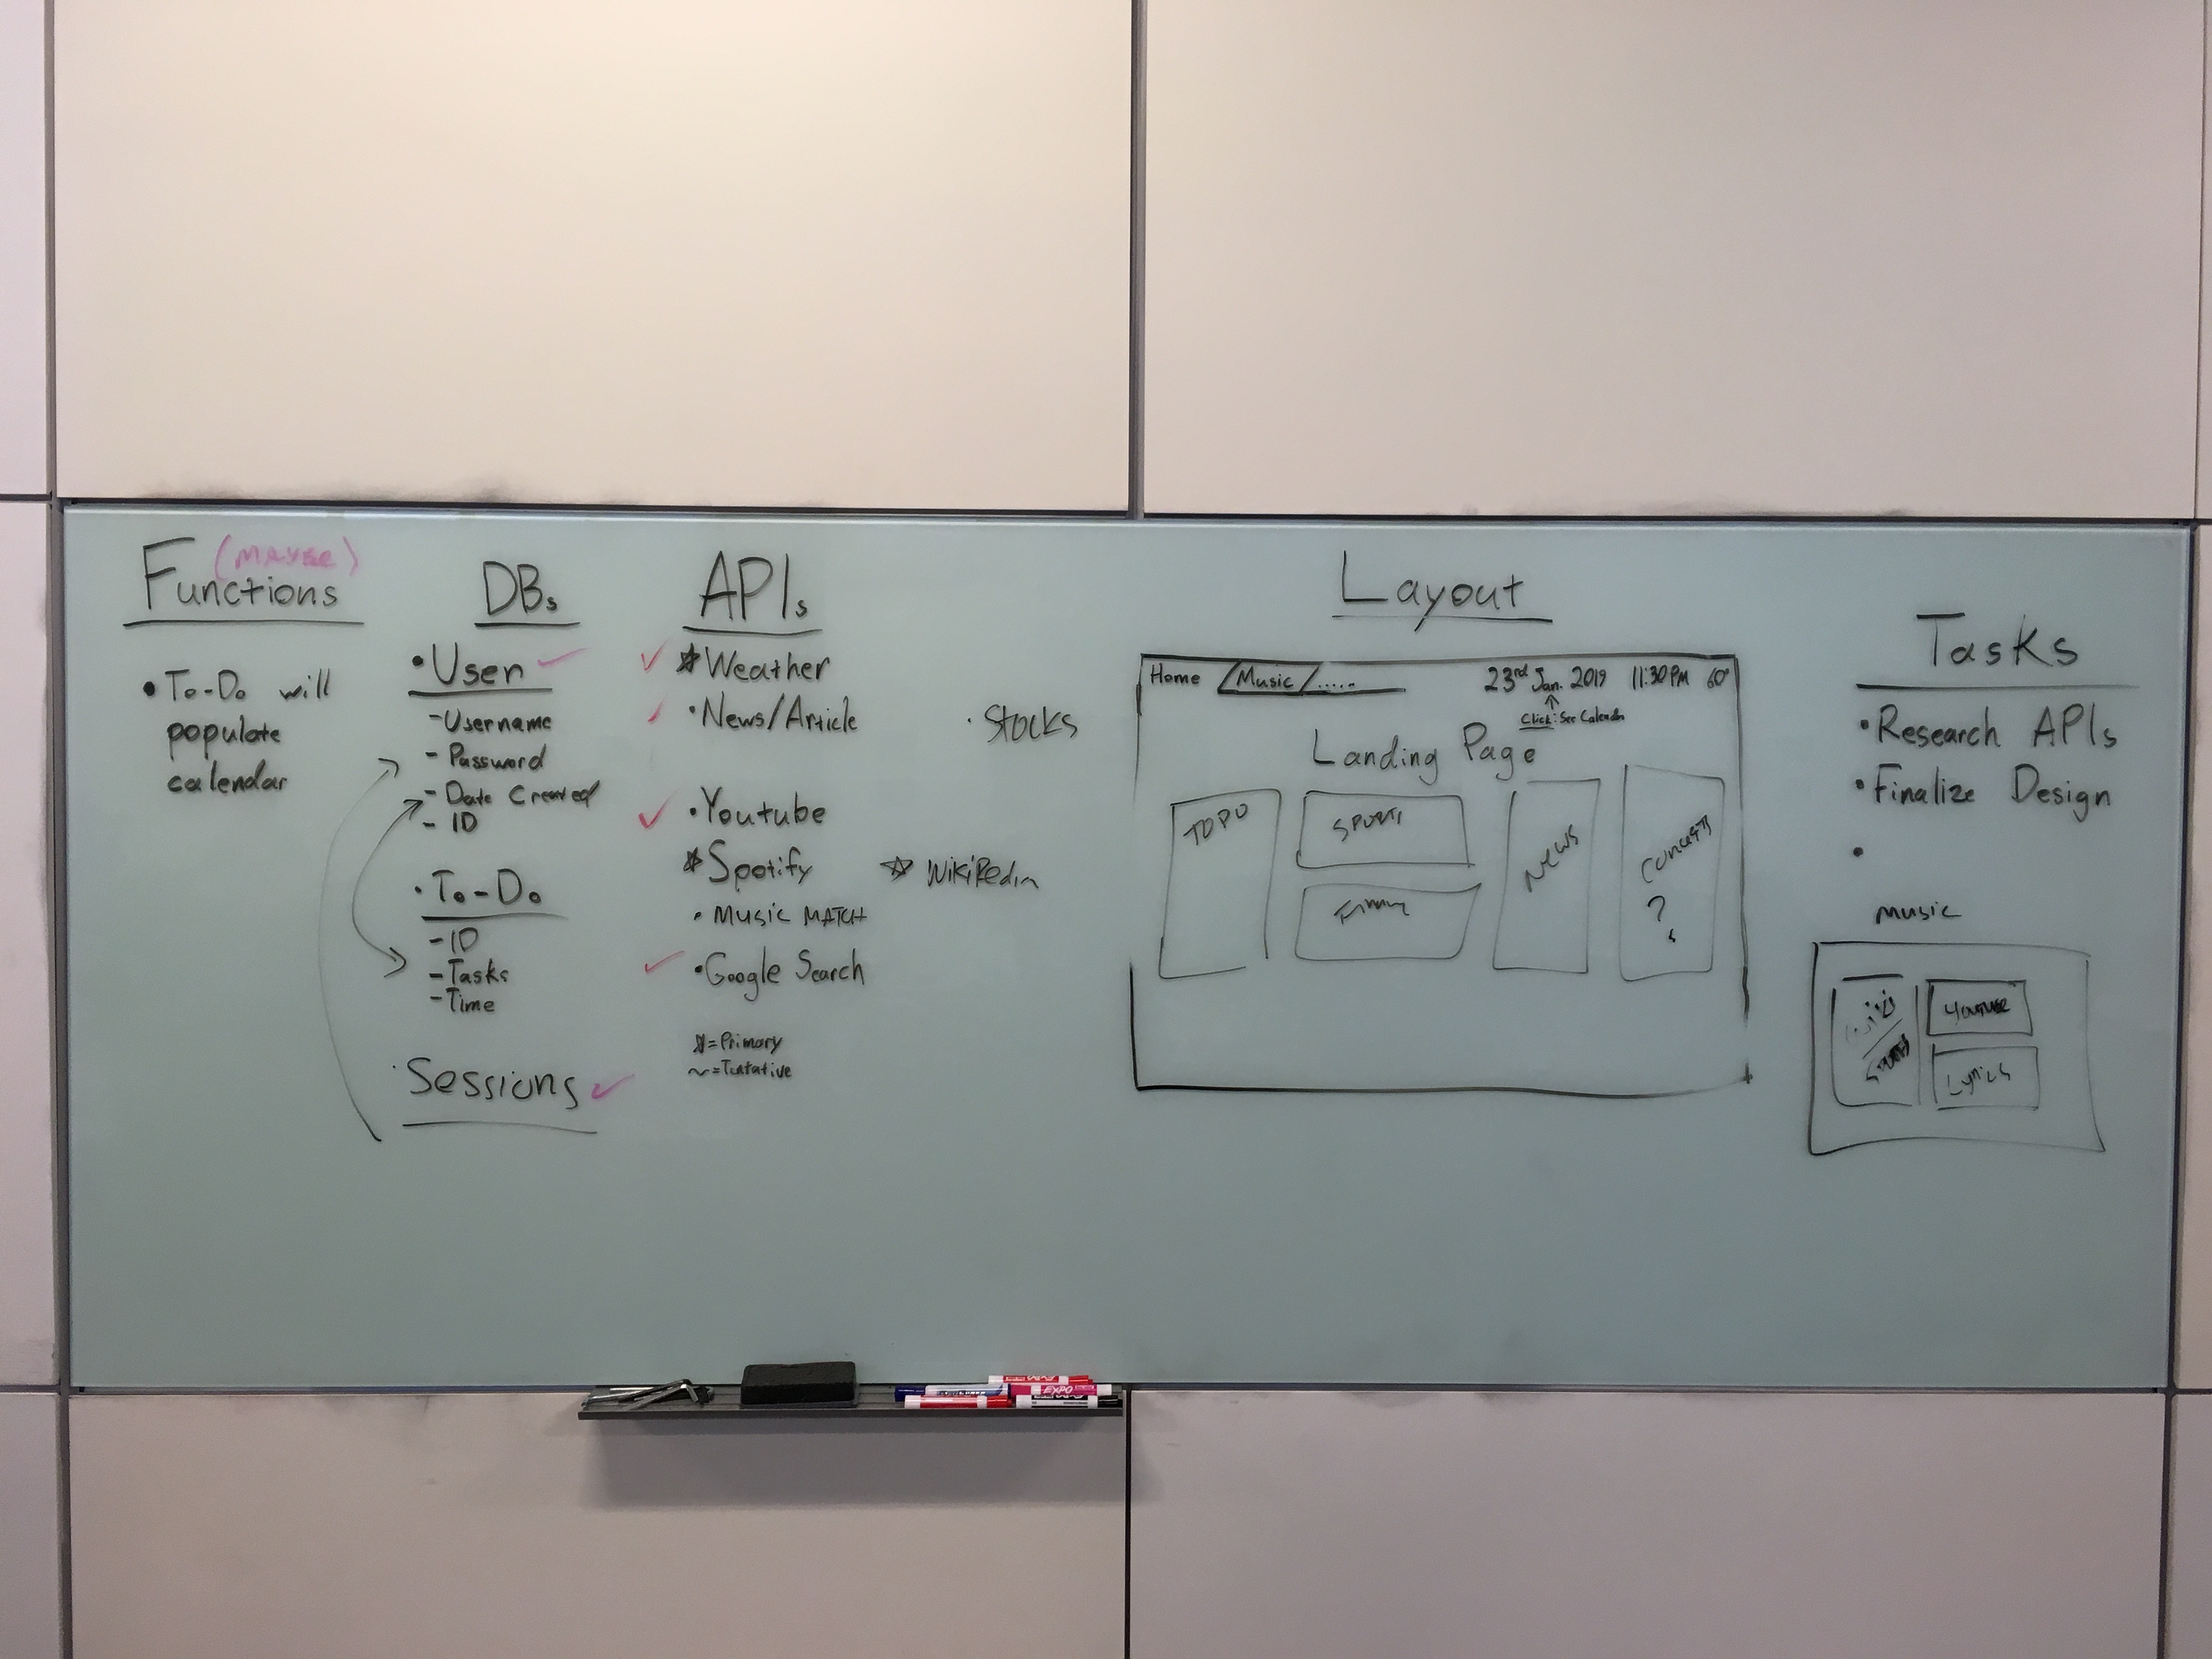 Functions
(MAYBE)
• To-Do will
populate
calendar
DBs
• User ✓
- Username
- Password
- Date Created
- ID
• To-Do
- ID
- Tasks
- Time
• Sessions ✓
APIs
✓ ☆ Weather
✓ • News/Article
• Stocks
✓ • Youtube
☆ Spotify
☆ WikiPedia
• Music MATCH
✓ • Google Search
☆ = Primary
~ = Tentative
Layout
Home Music ..... 23rd Jan. 2019 11:30PM 60°
Click: See Calendar
Landing Page
TODO
SPORTS
NEWS
Concerts
?
Tasks
• Research APIs
• Finalize Design
•
music
Youtube
Lyrics
EXPO